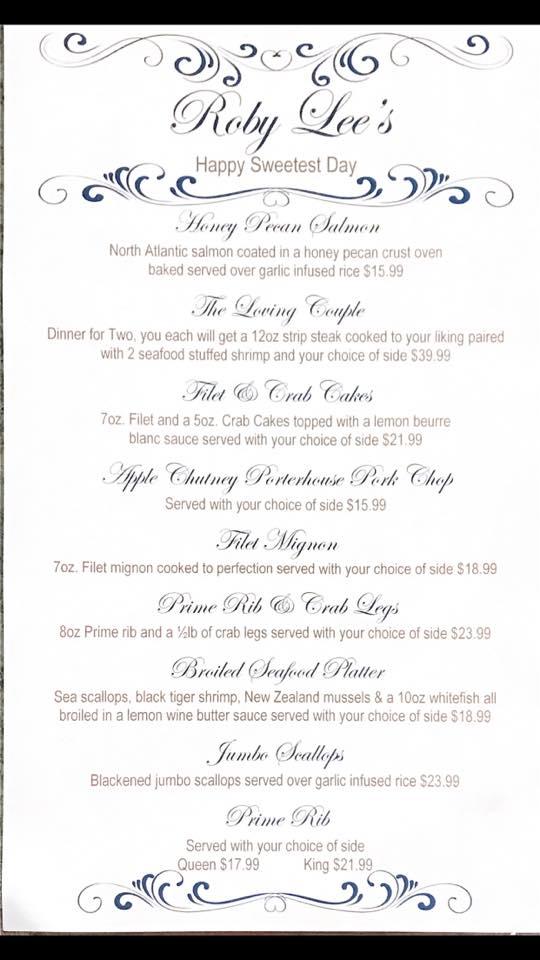 Roby Lee's
Happy Sweetest Day
Honey Pecan Salmon
North Atlantic salmon coated in a honey pecan crust oven
baked served over garlic infused rice $15.99
The Loving Couple
Dinner for Two, you each will get a 12oz strip steak cooked to your liking paired
with 2 seafood stuffed shrimp and your choice of side $39.99
Filet & Crab Cakes
7oz. Filet and a 5oz. Crab Cakes topped with a lemon beurre
blanc sauce served with your choice of side $21.99
Apple Chutney Porterhouse Pork Chop
Served with your choice of side $15.99
Filet Mignon
7oz. Filet mignon cooked to perfection served with your choice of side $18.99
Prime Rib & Crab Legs
8oz Prime rib and a ½lb of crab legs served with your choice of side $23.99
Broiled Seafood Platter
Sea scallops, black tiger shrimp, New Zealand mussels & a 10oz whitefish all
broiled in a lemon wine butter sauce served with your choice of side $18.99
Jumbo Scallops
Blackened jumbo scallops served over garlic infused rice $23.99
Prime Rib
Served with your choice of side
Queen $17.99 King $21.99